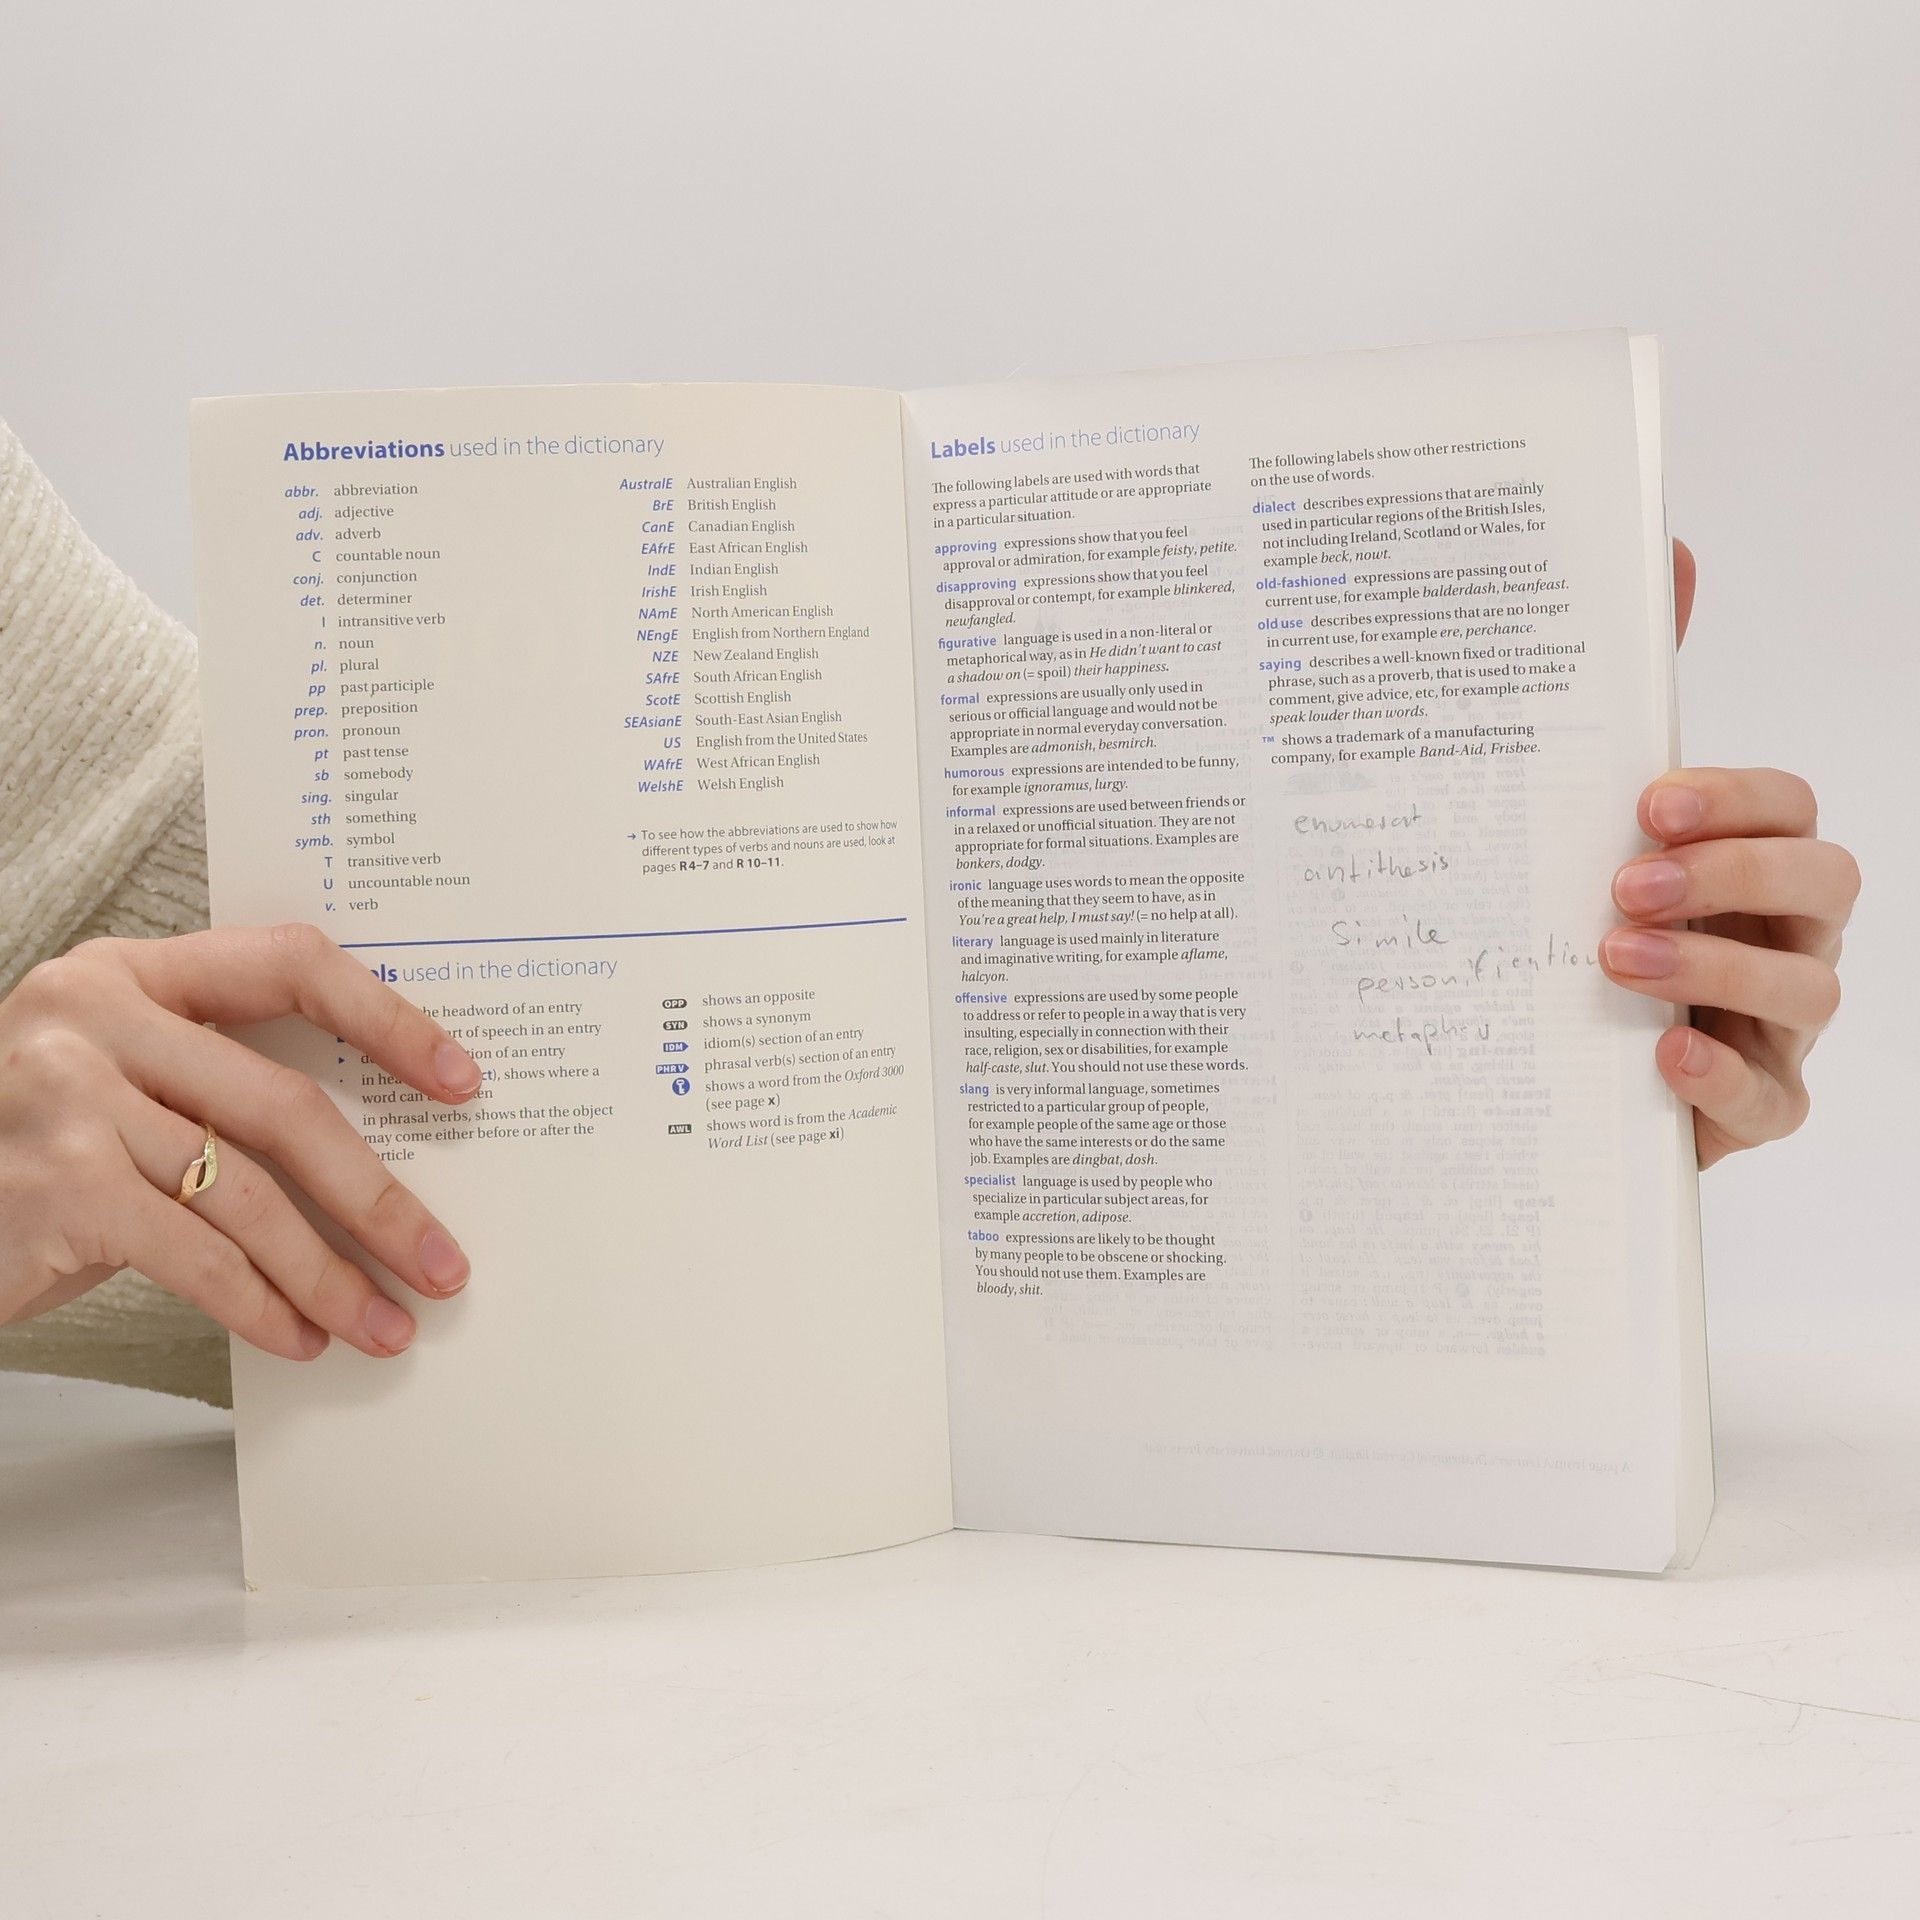 Abbreviations used in the dictionary
abbr. abbreviation
adj. adjective
adv. adverb
C countable noun
conj. conjunction
det. determiner
I intransitive verb
n. noun
pl. plural
pp past participle
prep. preposition
pron. pronoun
pt past tense
sb somebody
sing. singular
sth something
symb. symbol
T transitive verb
U uncountable noun
v. verb
AustralE Australian English
BrE British English
CanE Canadian English
EAfrE East African English
IndE Indian English
IrishE Irish English
NAmE North American English
NEngE English from Northern England
NZE New Zealand English
SAfrE South African English
ScotE Scottish English
SEAsianE South-East Asian English
US English from the United States
WAfrE West African English
WelshE Welsh English
→ To see how the abbreviations are used to show how
different types of verbs and nouns are used, look at
pages R4–7 and R 10–11.
used in the dictionary
headword of an entry
of speech in an entry
of an entry
in shows where a
word can
in phrasal verbs, shows that the object
may come either before or after the
OPP shows an opposite
SYN shows a synonym
IDM idiom(s) section of an entry
PHR V phrasal verb(s) section of an entry
shows a word from the Oxford 3000
(see page x)
AWL shows word is from the Academic
Word List (see page xi)
Labels used in the dictionary
The following labels are used with words that
express a particular attitude or are appropriate
in a particular situation.
approving expressions show that you feel
approval or admiration, for example feisty, petite.
disapproving expressions show that you feel
disapproval or contempt, for example blinkered,
newfangled.
figurative language is used in a non-literal or
metaphorical way, as in He didn't want to cast
a shadow on (= spoil) their happiness.
formal expressions are usually only used in
serious or official language and would not be
appropriate in normal everyday conversation.
Examples are admonish, besmirch.
humorous expressions are intended to be funny,
for example ignoramus, lurgy.
informal expressions are used between friends or
in a relaxed or unofficial situation. They are not
appropriate for formal situations. Examples are
bonkers, dodgy.
ironic language uses words to mean the opposite
of the meaning that they seem to have, as in
You're a great help, I must say! (= no help at all).
literary language is used mainly in literature
and imaginative writing, for example aflame,
halcyon.
offensive expressions are used by some people
to address or refer to people in a way that is very
insulting, especially in connection with their
race, religion, sex or disabilities, for example
half-caste, slut. You should not use these words.
slang is very informal language, sometimes
restricted to a particular group of people,
for example people of the same age or those
who have the same interests or do the same
job. Examples are dingbat, dosh.
specialist language is used by people who
specialize in particular subject areas, for
example accretion, adipose.
taboo expressions are likely to be thought
by many people to be obscene or shocking.
You should not use them. Examples are
bloody, shit.
The following labels show other restrictions
on the use of words.
dialect describes expressions that are mainly
used in particular regions of the British Isles,
not including Ireland, Scotland or Wales, for
example beck, nowt.
old-fashioned expressions are passing out of
current use, for example balderdash, beanfeast.
old use describes expressions that are no longer
in current use, for example ere, perchance.
saying describes a well-known fixed or traditional
phrase, such as a proverb, that is used to make a
comment, give advice, etc, for example actions
speak louder than words.
™ shows a trademark of a manufacturing
company, for example Band-Aid, Frisbee.
antithesis
Simile